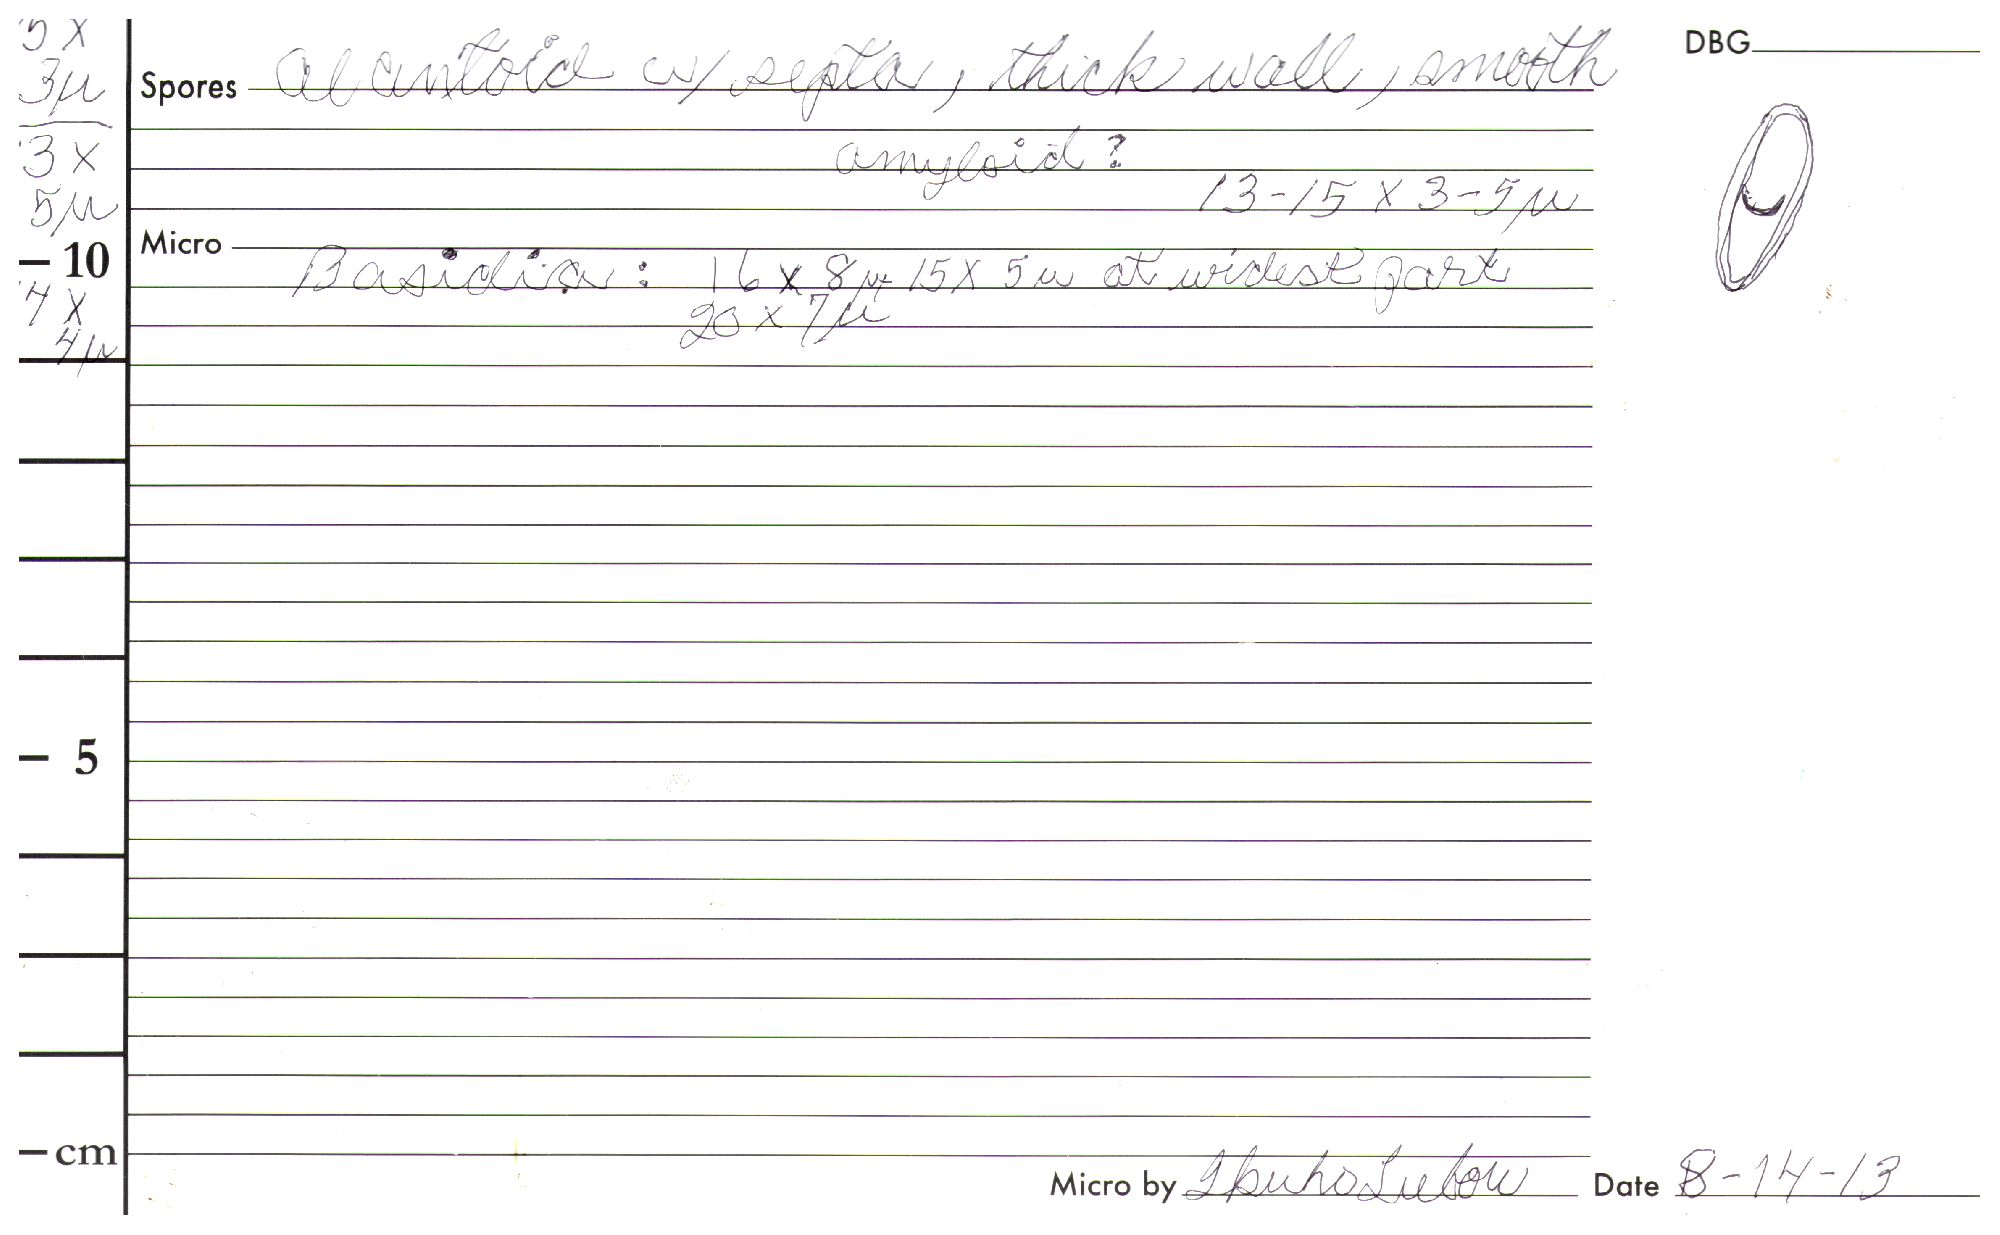 5 X
3µ
3 X
5µ
10
4 X
4µ
5
cm
DBG
Spores alantoid w/ septa, thick wall, smooth
amyloid?
13-15 X 3-5µ
Micro
Basidia: 16 x 8µ 15 X 5µ at widest part
20 X 7µ
Micro by Ikuko Lubow Date 8-14-13